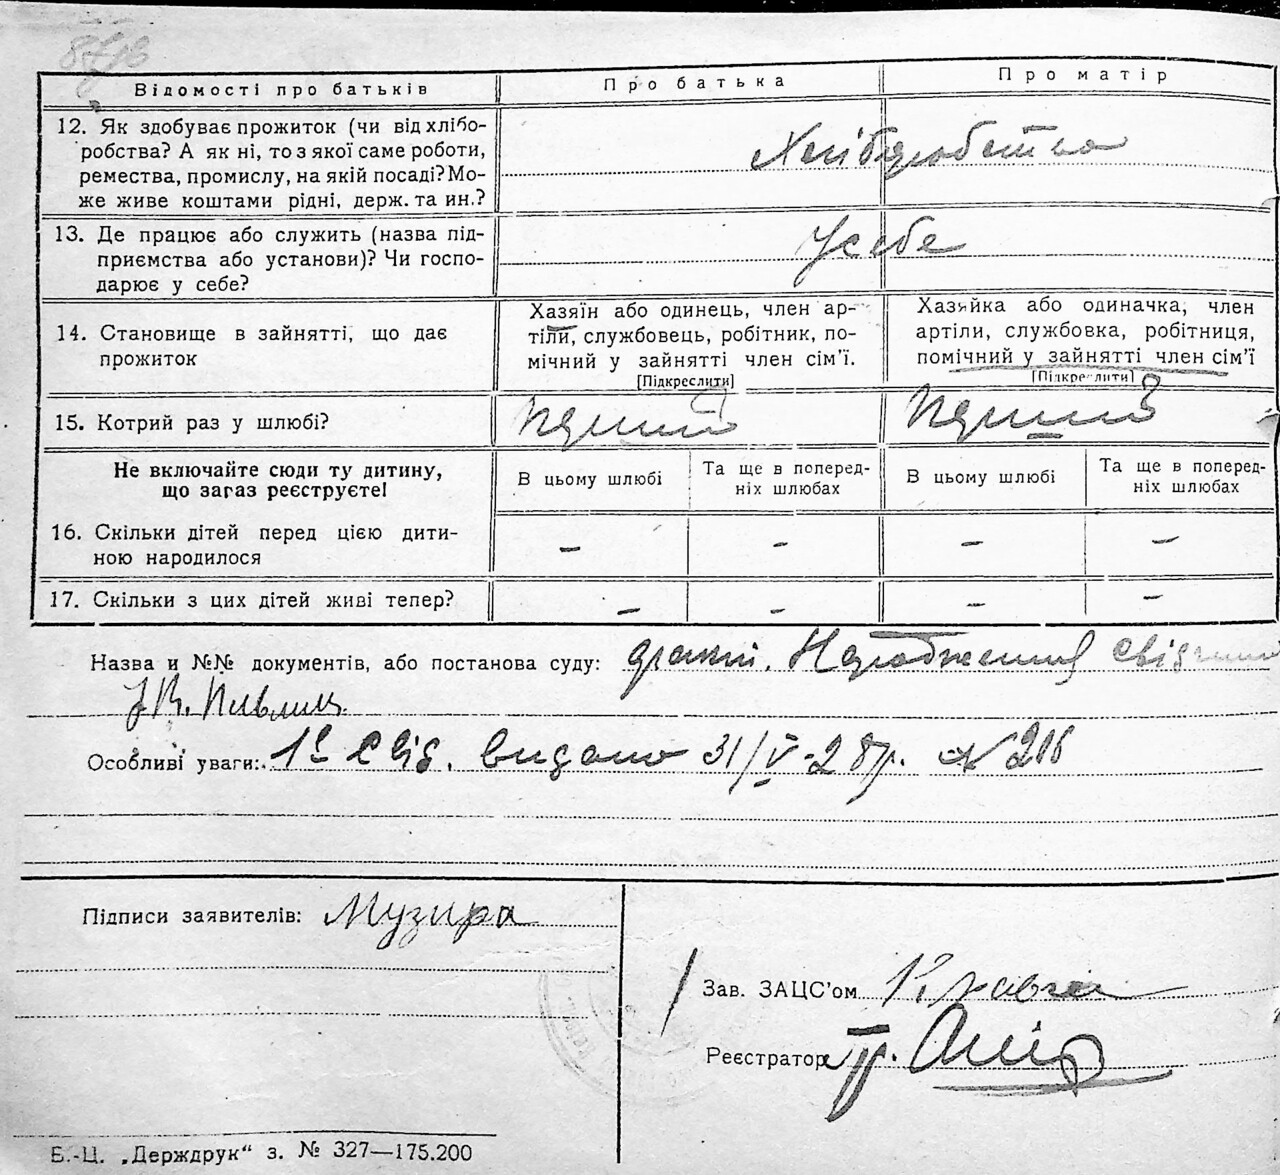 87 зв
Відомості про батьків
Про батька
Про матір
12. Як здобуває прожиток (чи від хлібо-
робства? А як ні, то з якої саме роботи,
ремества, промислу, на якій посаді? Мо-
же живе коштами рідні, держ. та ин.?
Хліборобство
13. Де працює або служить (назва під-
приємства або установи)? Чи госпо-
дарює у себе?
У себе
14. Становище в зайнятті, що дає
прожиток
Хазяїн або одинець, член ар-
тіли, службовець, робітник, по-
мічний у зайнятті член сім’ї.
[Підкреслити]
Хазяйка або одиначка, член
артіли, службовка, робітниця,
помічний у зайнятті член сім’ї
[Підкреслити]
15. Котрий раз у шлюбі?
Перший
Перший
Не включайте сюди ту дитину,
що загаз реєструєте!
В цьому шлюбі
Та ще в поперед-
ніх шлюбах
В цьому шлюбі
Та ще в поперед-
ніх шлюбах
16. Скільки дітей перед цією дити-
ною народилося
– – – –
17. Скільки з цих дітей живі тепер?
– – – –
Назва и №№ документів, або постанова суду: Народження
Особливі уваги: Свід. видано 31/V-28р. № 206
Підписи заявителів: Музира
Зав. ЗАЦС’ом
Реєстратор
Б.-Ц. „Держдрук“ з. № 327—175.200